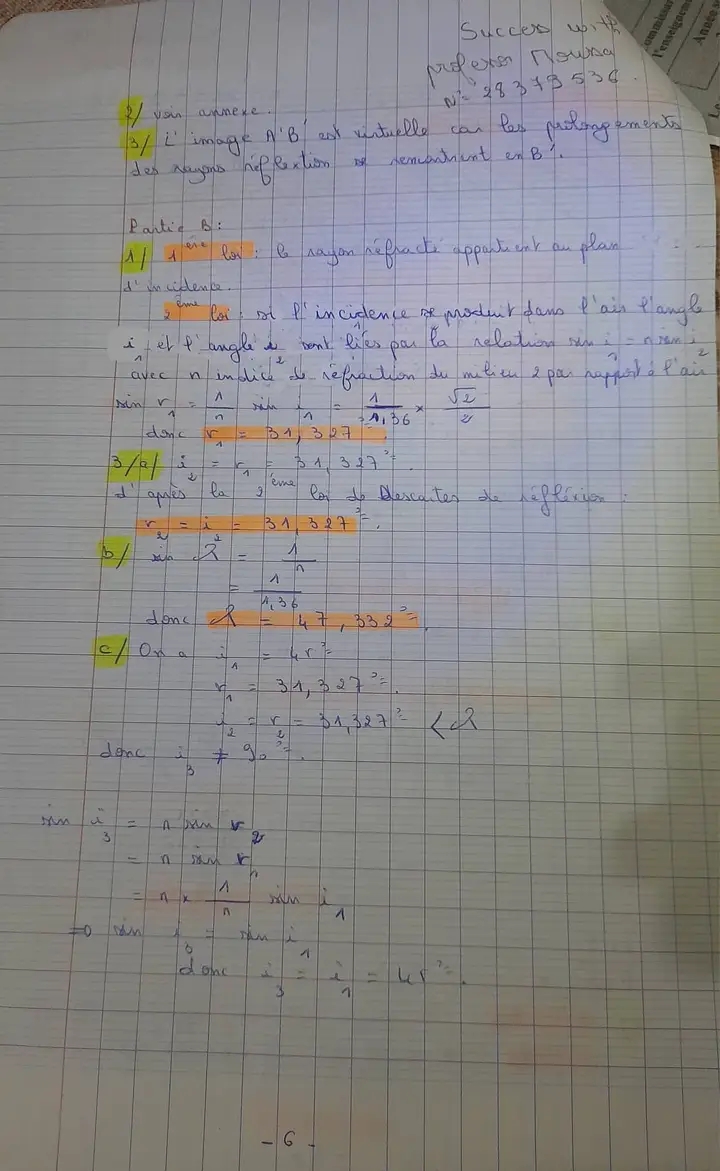 Succes with
professor Moussa
N° = 28 379 536.
2/ voir annexe.
3/ L'image A'B' est virtuelle car les prolongements
des rayons réflextion se rencontrent en B'.
Partie B :
1/ 1ère loi : le rayon réfracté appartient au plan
d'incidence.
2ème loi : si l'incidence se produit dans l'air l'angle
i1 et l'angle i2 sont liés par la relation sin i1 = n sin i2
avec n indice de réfraction du milieu 2 par rapport à l'air
sin r1 = 1/n sin i1 = 1/1,36 × √2/2
donc r1 = 31,327°.
3/a/ i2 = r1 = 31,327°.
d'après la 2ème loi de Descartes de réfléxion :
r2 = i2 = 31,327°.
b/ sin λ = 1/n
= 1/1,36
donc λ = 47,332°.
c/ On a i1 = 45°
r1 = 31,327°.
i2 = r2 = 31,327° < λ
donc i3 ≠ 90°.
sin i3 = n sin r2
= n sin r1
= n × 1/n sin i1
=> sin i3 = sin i1
donc i3 = i1 = 45°.
- 6 -